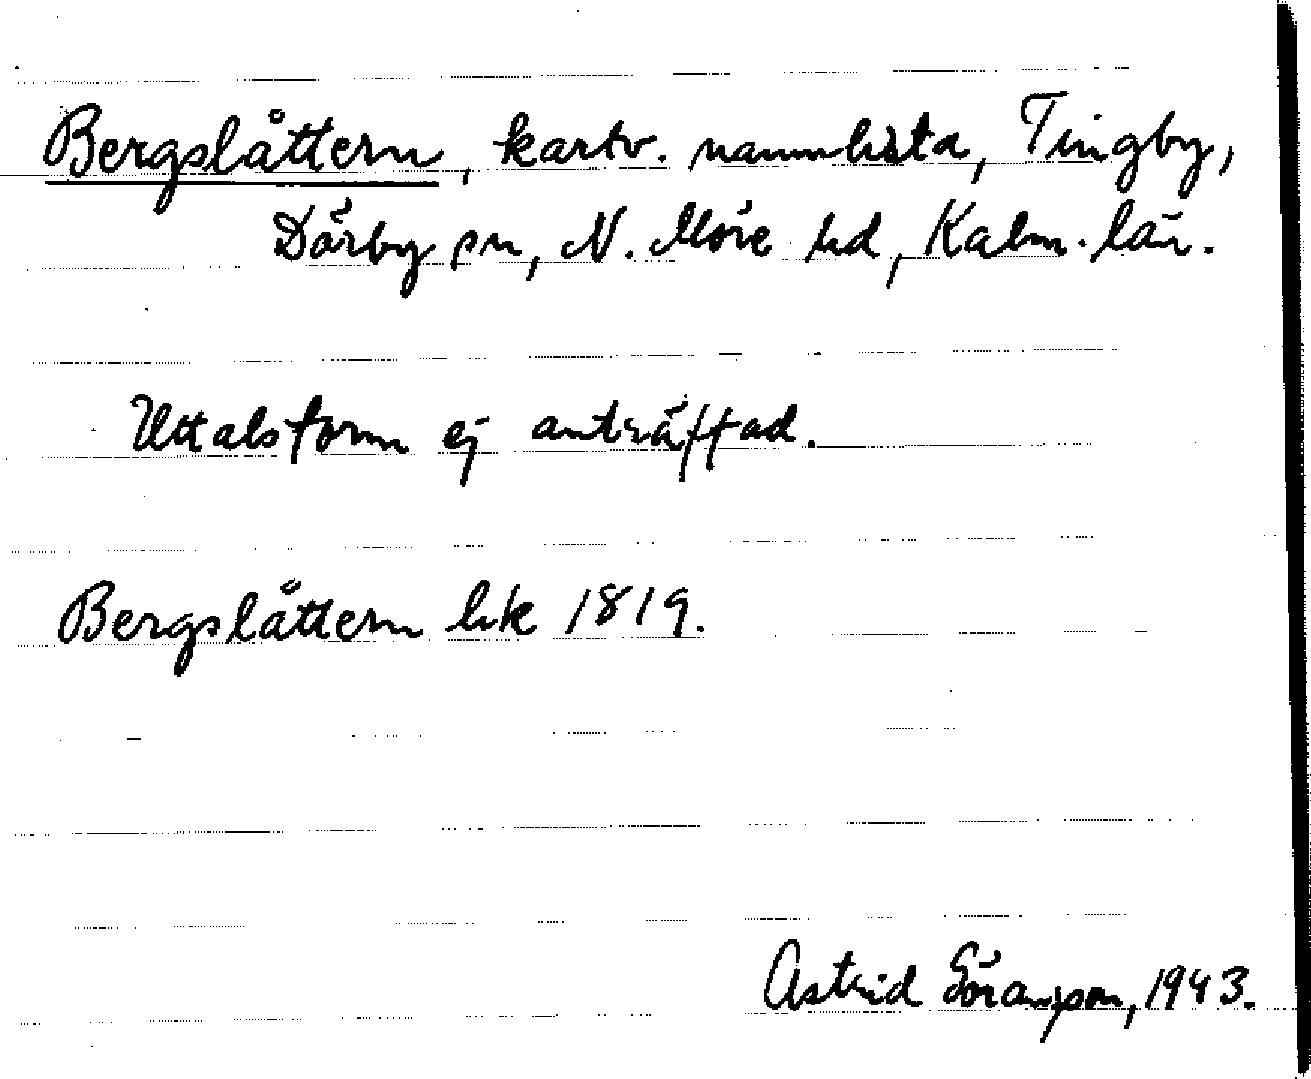 Bergslåttern, kartv. namnlista, Tingby,
Dörby sn, N. Möre hd, Kalm. län.
Uttalsform ej anträffad.
Bergslåttern lsk 1819.
Astrid Göransson, 1943.